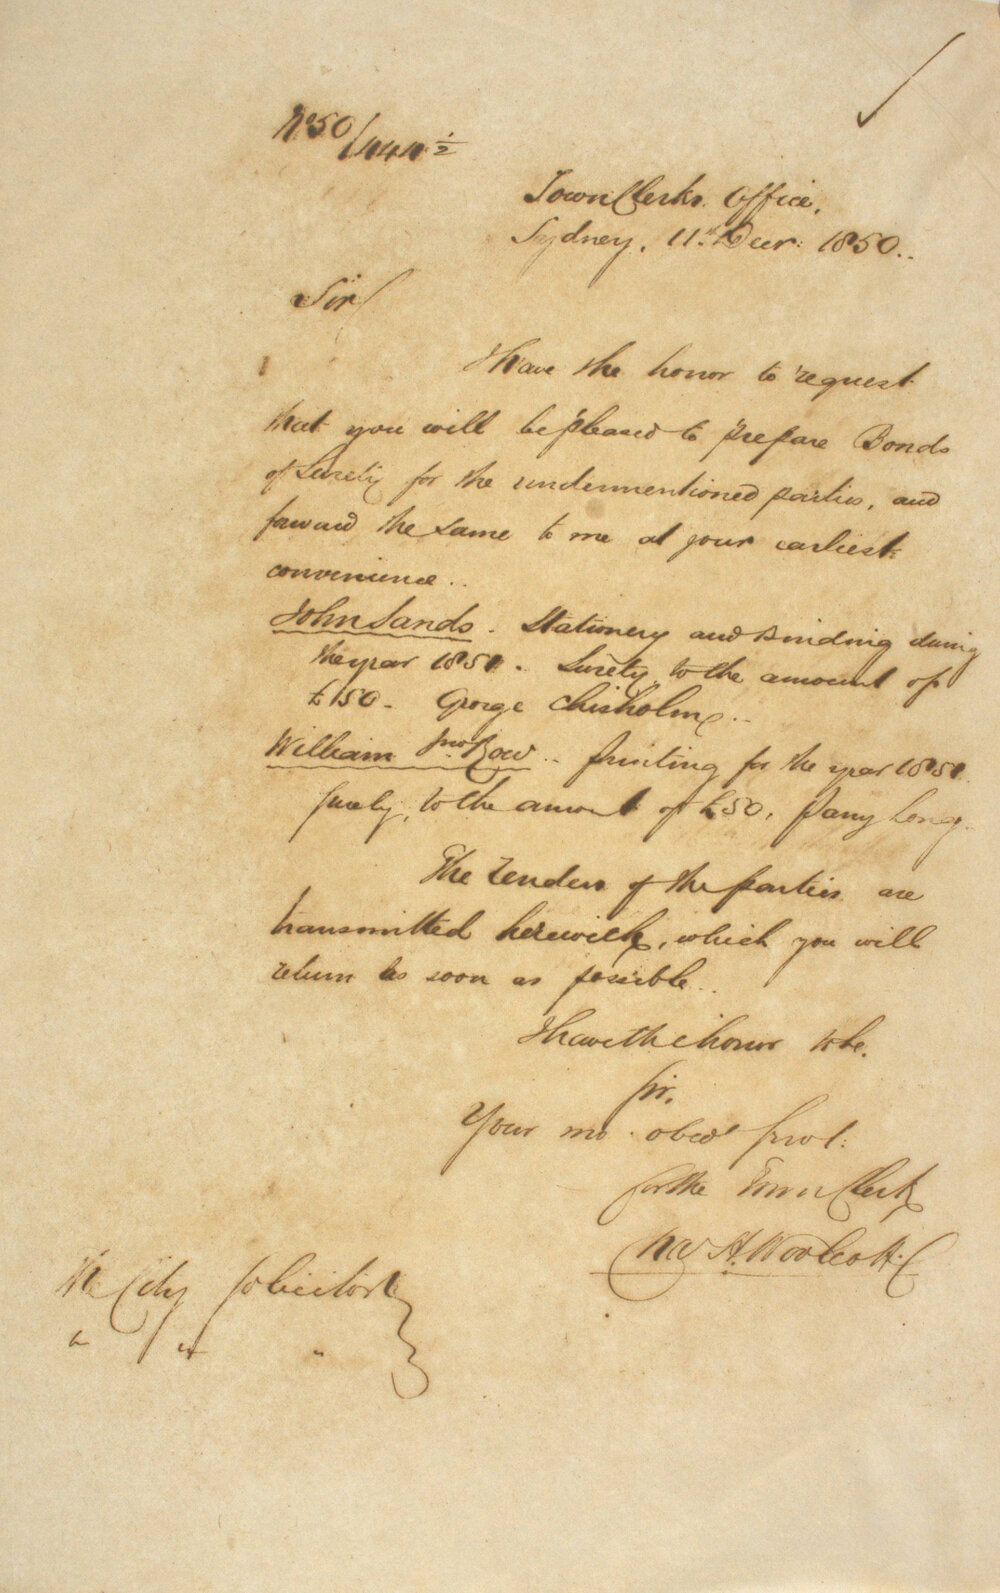 No 50/1444 1/2
Town Clerks Office,
Sydney, 11th Decr: 1850..
Sir
I have the honor to request
that you will be pleased to prepare Bonds
of Surety for the undermentioned parties, and
forward the same to me at your earliest
convenience..
John Sands. Stationery and Binding during
the year 1851. Surety to the amount of
£150. George Chisholm..
William Row.. Printing for the year 1851
surety, to the amount of £50, Long
The tenders of the parties are
transmitted herewith, which you will
return as soon as possible..
I have the honor to be.
Sir,
Your mo. obedt Servt:
for the Town Clerk
H. Woolcott
The City Solicitor
" " "